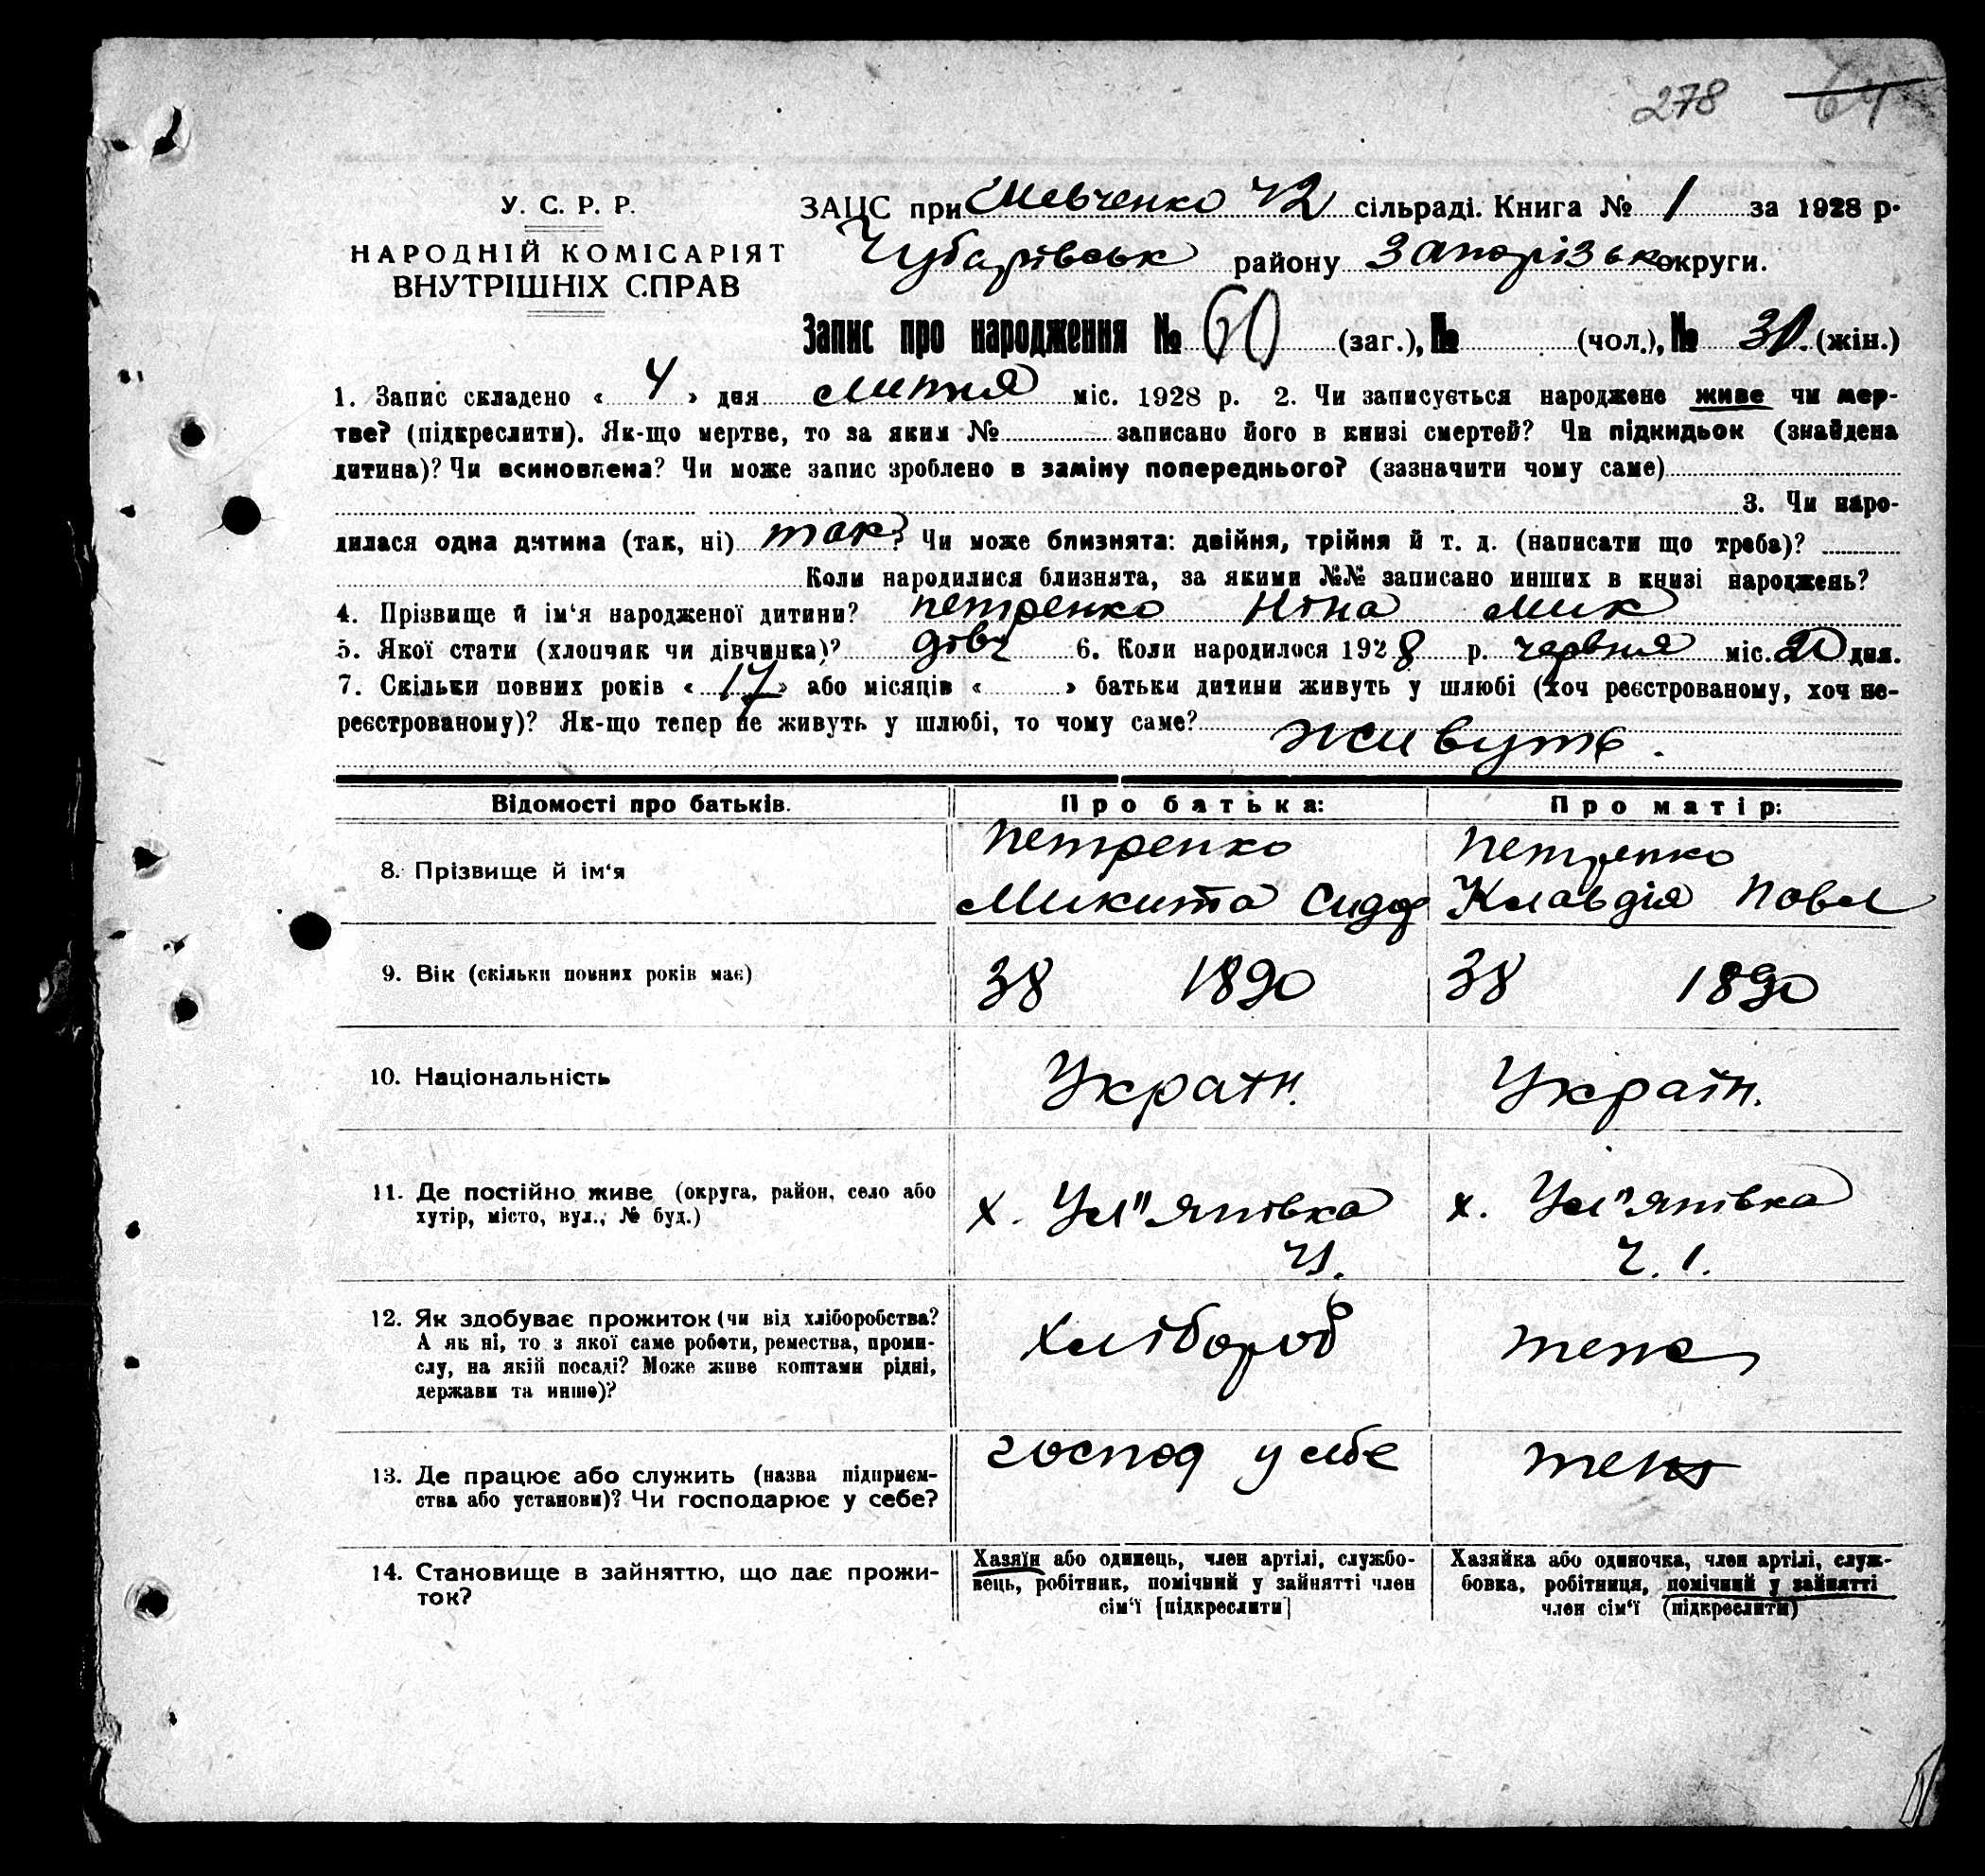 278 64
У. С. Р. Р.
НАРОДНІЙ КОМІСАРІЯТ
ВНУТРІШНІХ СПРАВ
ЗАЦС при Шевченко ч2 сільраді. Книга № 1 за 1928 р.
Чубарівськ району Запорізьк округи.
Запис про народження № 60 (заг.), № (чол.), № 30. (жін.)
1. Запис складено « 4 » дня липня міс. 1928 р. 2. Чи записується народжене живе чи мер-
тве? (підкреслити). Як-що мертве, то за яким № записано його в книзі смертей? Чи підкидьок (знайдена
дитина)? Чи всиновлена? Чи може запис зроблено в заміну попереднього? (зазначити чому саме)
3. Чи наро-
дилася одна дитина (так, ні) так? Чи може близнята: двійня, трійня й т. д. (написати що треба)?
Коли народилися близнята, за якими №№ записано инших в книзі народжень?
4. Прізвище й ім‘я народженої дитини? Петренко Ніна Мик
5. Якої стати (хлопчик чи дівчинка)? дівч 6. Коли народилося 1928 р. червня міс. 20 дня.
7. Скільки повних років « 17 » або місяців « » батьки дитини живуть у шлюбі (хоч реєстрованому, хоч не-
реєстрованому)? Як-що тепер не живуть у шлюбі, то чому саме?
живуть.
Відомості про батьків. Про батька: Про матір:
8. Прізвище й ім‘я
Петренко
Микита Сидор
Петренко
Клавдія Павл
9. Вік (скільки повних років має) 38 1890 38 1890
10. Національність Україн. Україн.
11. Де постійно живе (округа, район, село або
хутір, місто, вул., № буд.)
х. Ул"янівка
ч1.
х. Ул"янівка
ч. 1.
12. Як здобуває прожиток (чи від хліборобства?
А як ні, то з якої саме роботи, ремества, проми-
слу, на якій посаді? Може живе коштами рідні,
держави та инше)?
хлібороб
теж
13. Де працює або служить (назва підприєм-
ства або установи)? Чи господарює у себе?
господ у себе
теж
14. Становище в зайняттю, що дає прожи-
ток?
Хазяїн або одинець, член артілі, службо-
вець, робітник, помічний у зайнятті член
сім‘ї [підкреслити]
Хазяйка або одиночка, член артілі, служ-
бовка, робітниця, помічний у зайнятті
член сім‘ї (підкреслити)